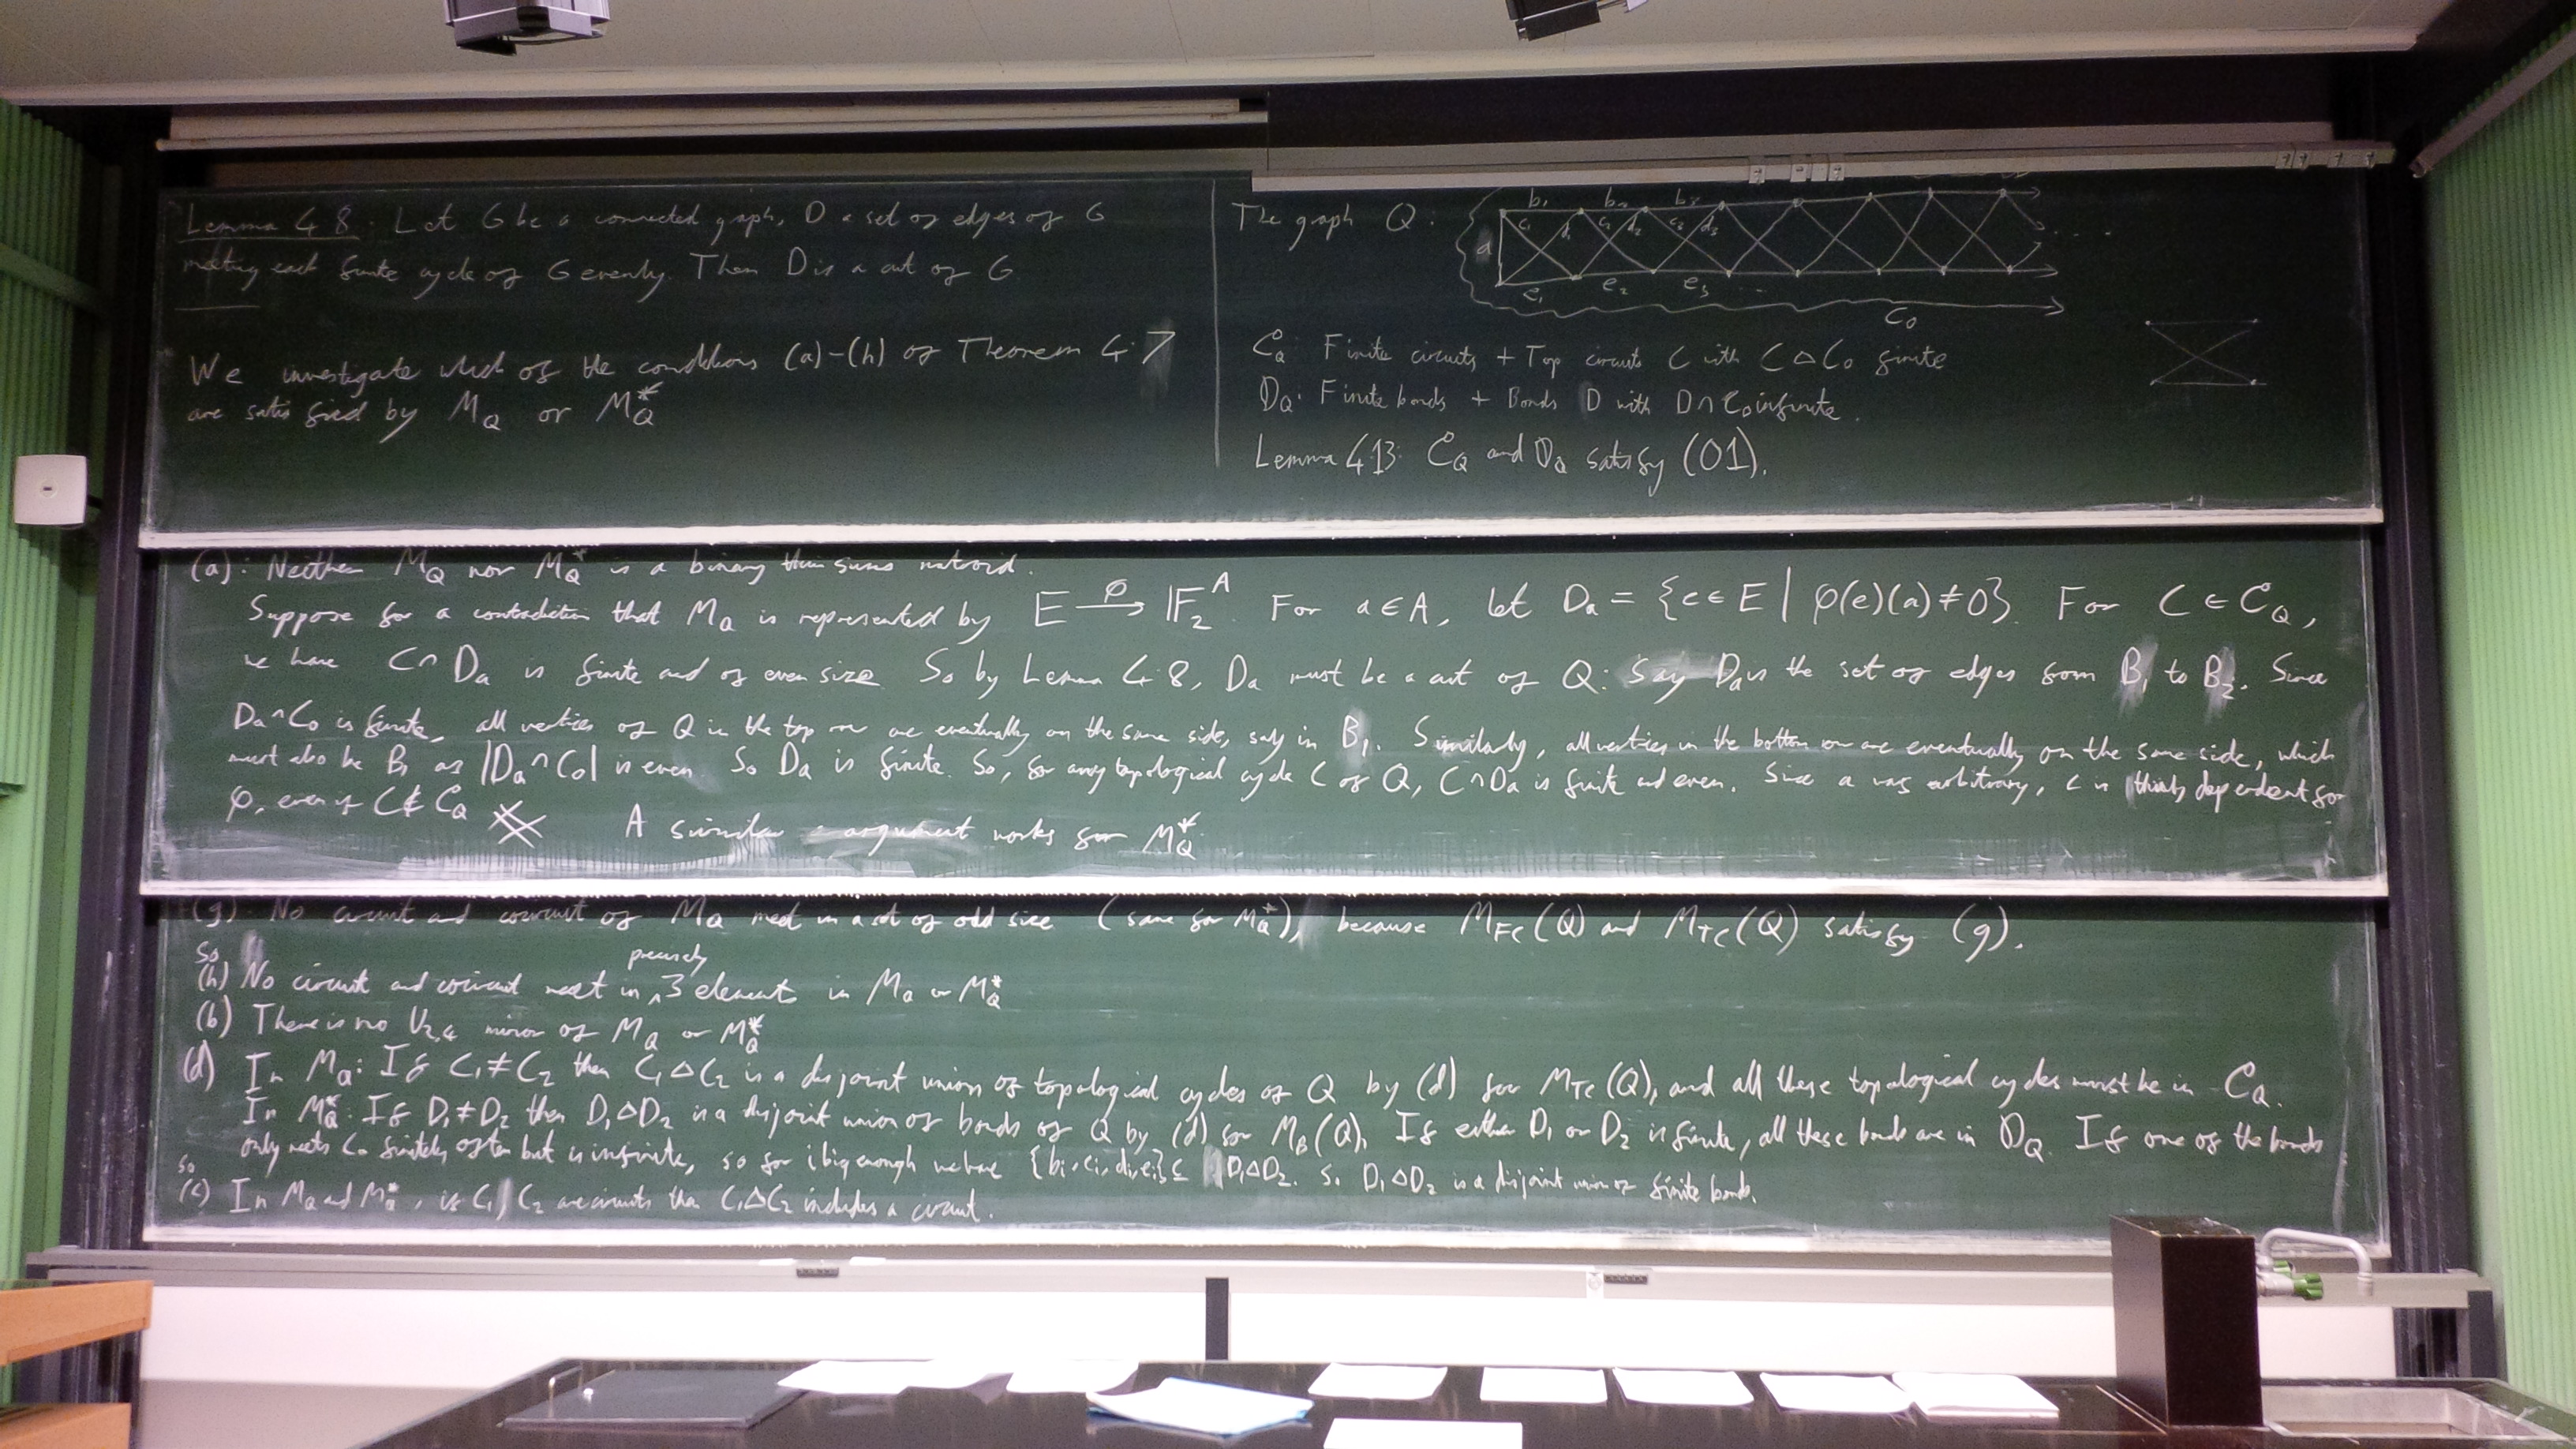 Lemma 4.8: Let G be a connected graph, D a set of edges of G
meeting each finite cycle of G evenly. Then D is a cut of G.
We investigate which of the conditions (a)-(h) of Theorem 4.7
are satisfied by M_Q or M_Q^*
The graph Q:
b₁ b₂ b₃
a c₁ d₁ c₂ d₂ c₃ d₃ ....
e₁ e₂ e₃ ...
C₀
C_Q: Finite circuits + Top circuits C with C △ C₀ finite
D_Q: Finite bonds + Bonds D with D∩C₀ infinite.
Lemma 4.13: C_Q and D_Q satisfy (O1).
(a): Neither M_Q nor M_Q^* is a binary thin sums matroid.
Suppose for a contradiction that M_Q is represented by E →^φ F₂^A. For a∈A, let D_a = {e∈E | φ(e)(a)≠0}. For C∈C_Q,
we have C∩D_a is finite and of even size. So by Lemma 4.8, D_a must be a cut of Q: Say D_a is the set of edges from B₁ to B₂. Since
D_a∩C₀ is finite, all vertices of Q in the top row are eventually on the same side, say in B₁. Similarly, all vertices in the bottom row are eventually on the same side, which
must also be B₁ as |D_a∩C₀| is even. So D_a is finite. So, for any topological cycle C of Q, C∩D_a is finite and even. Since a was arbitrary, C is thinly dependent for
φ, even if C∉C_Q ※ A similar argument works for M_Q^*
(g). No circuit and cocircuit of M_Q meet in a set of odd size (same for M_Q^*), because M_FC(Q) and M_TC(Q) satisfy (g).
So
(h) No circuit and cocircuit meet in precisely 3 elements in M_Q or M_Q^*
(b) There is no U₂,₄ minor of M_Q or M_Q^*
(d) In M_Q: If C₁≠C₂ then C₁△C₂ is a disjoint union of topological cycles of Q by (d) for M_TC(Q), and all these topological cycles must be in C_Q.
In M_Q^*: If D₁≠D₂ then D₁△D₂ is a disjoint union of bonds of Q by (d) for M_B(Q). If either D₁ or D₂ is finite, all these bonds are in D_Q. If one of the bonds
only meets C₀ finitely often but is infinite, so for i big enough we have {b_i, c_i, d_i, e_i} ⊆ D₁△D₂. So D₁△D₂ is a disjoint union of finite bonds.
so
(c) In M_Q and M_Q^*, if C₁, C₂ are circuits then C₁△C₂ includes a circuit.